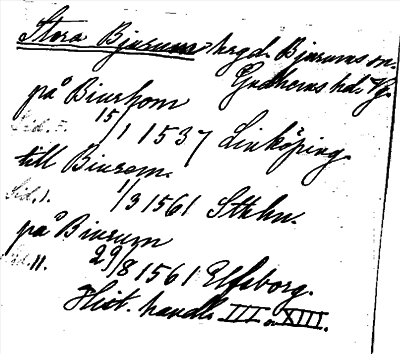 Stora Bjurum hrgd. Bjurums sn.
Gudhems hd. Vg.
på Biurhom
15/1 1537 Linköping.
till Biurom.
Ibid. I. 1/3 1561 Sthlm.
på Biurum
Ibid. II. 29/8 1561 Elfsborg.
Hist. handl. III o. XIII.